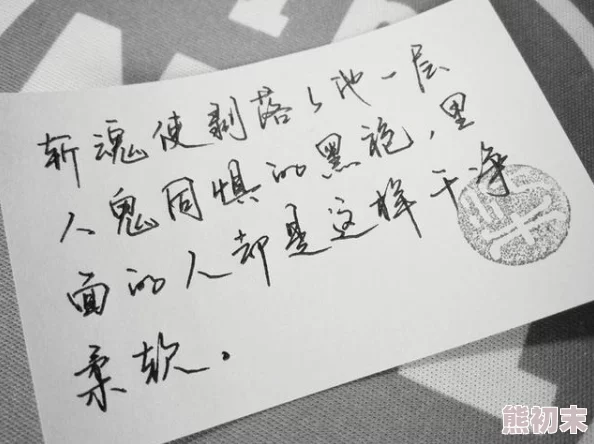 斩魂使剥落了他一层
人鬼同惧的黑袍，里
面的人却是这样干净
柔软。
熊初末